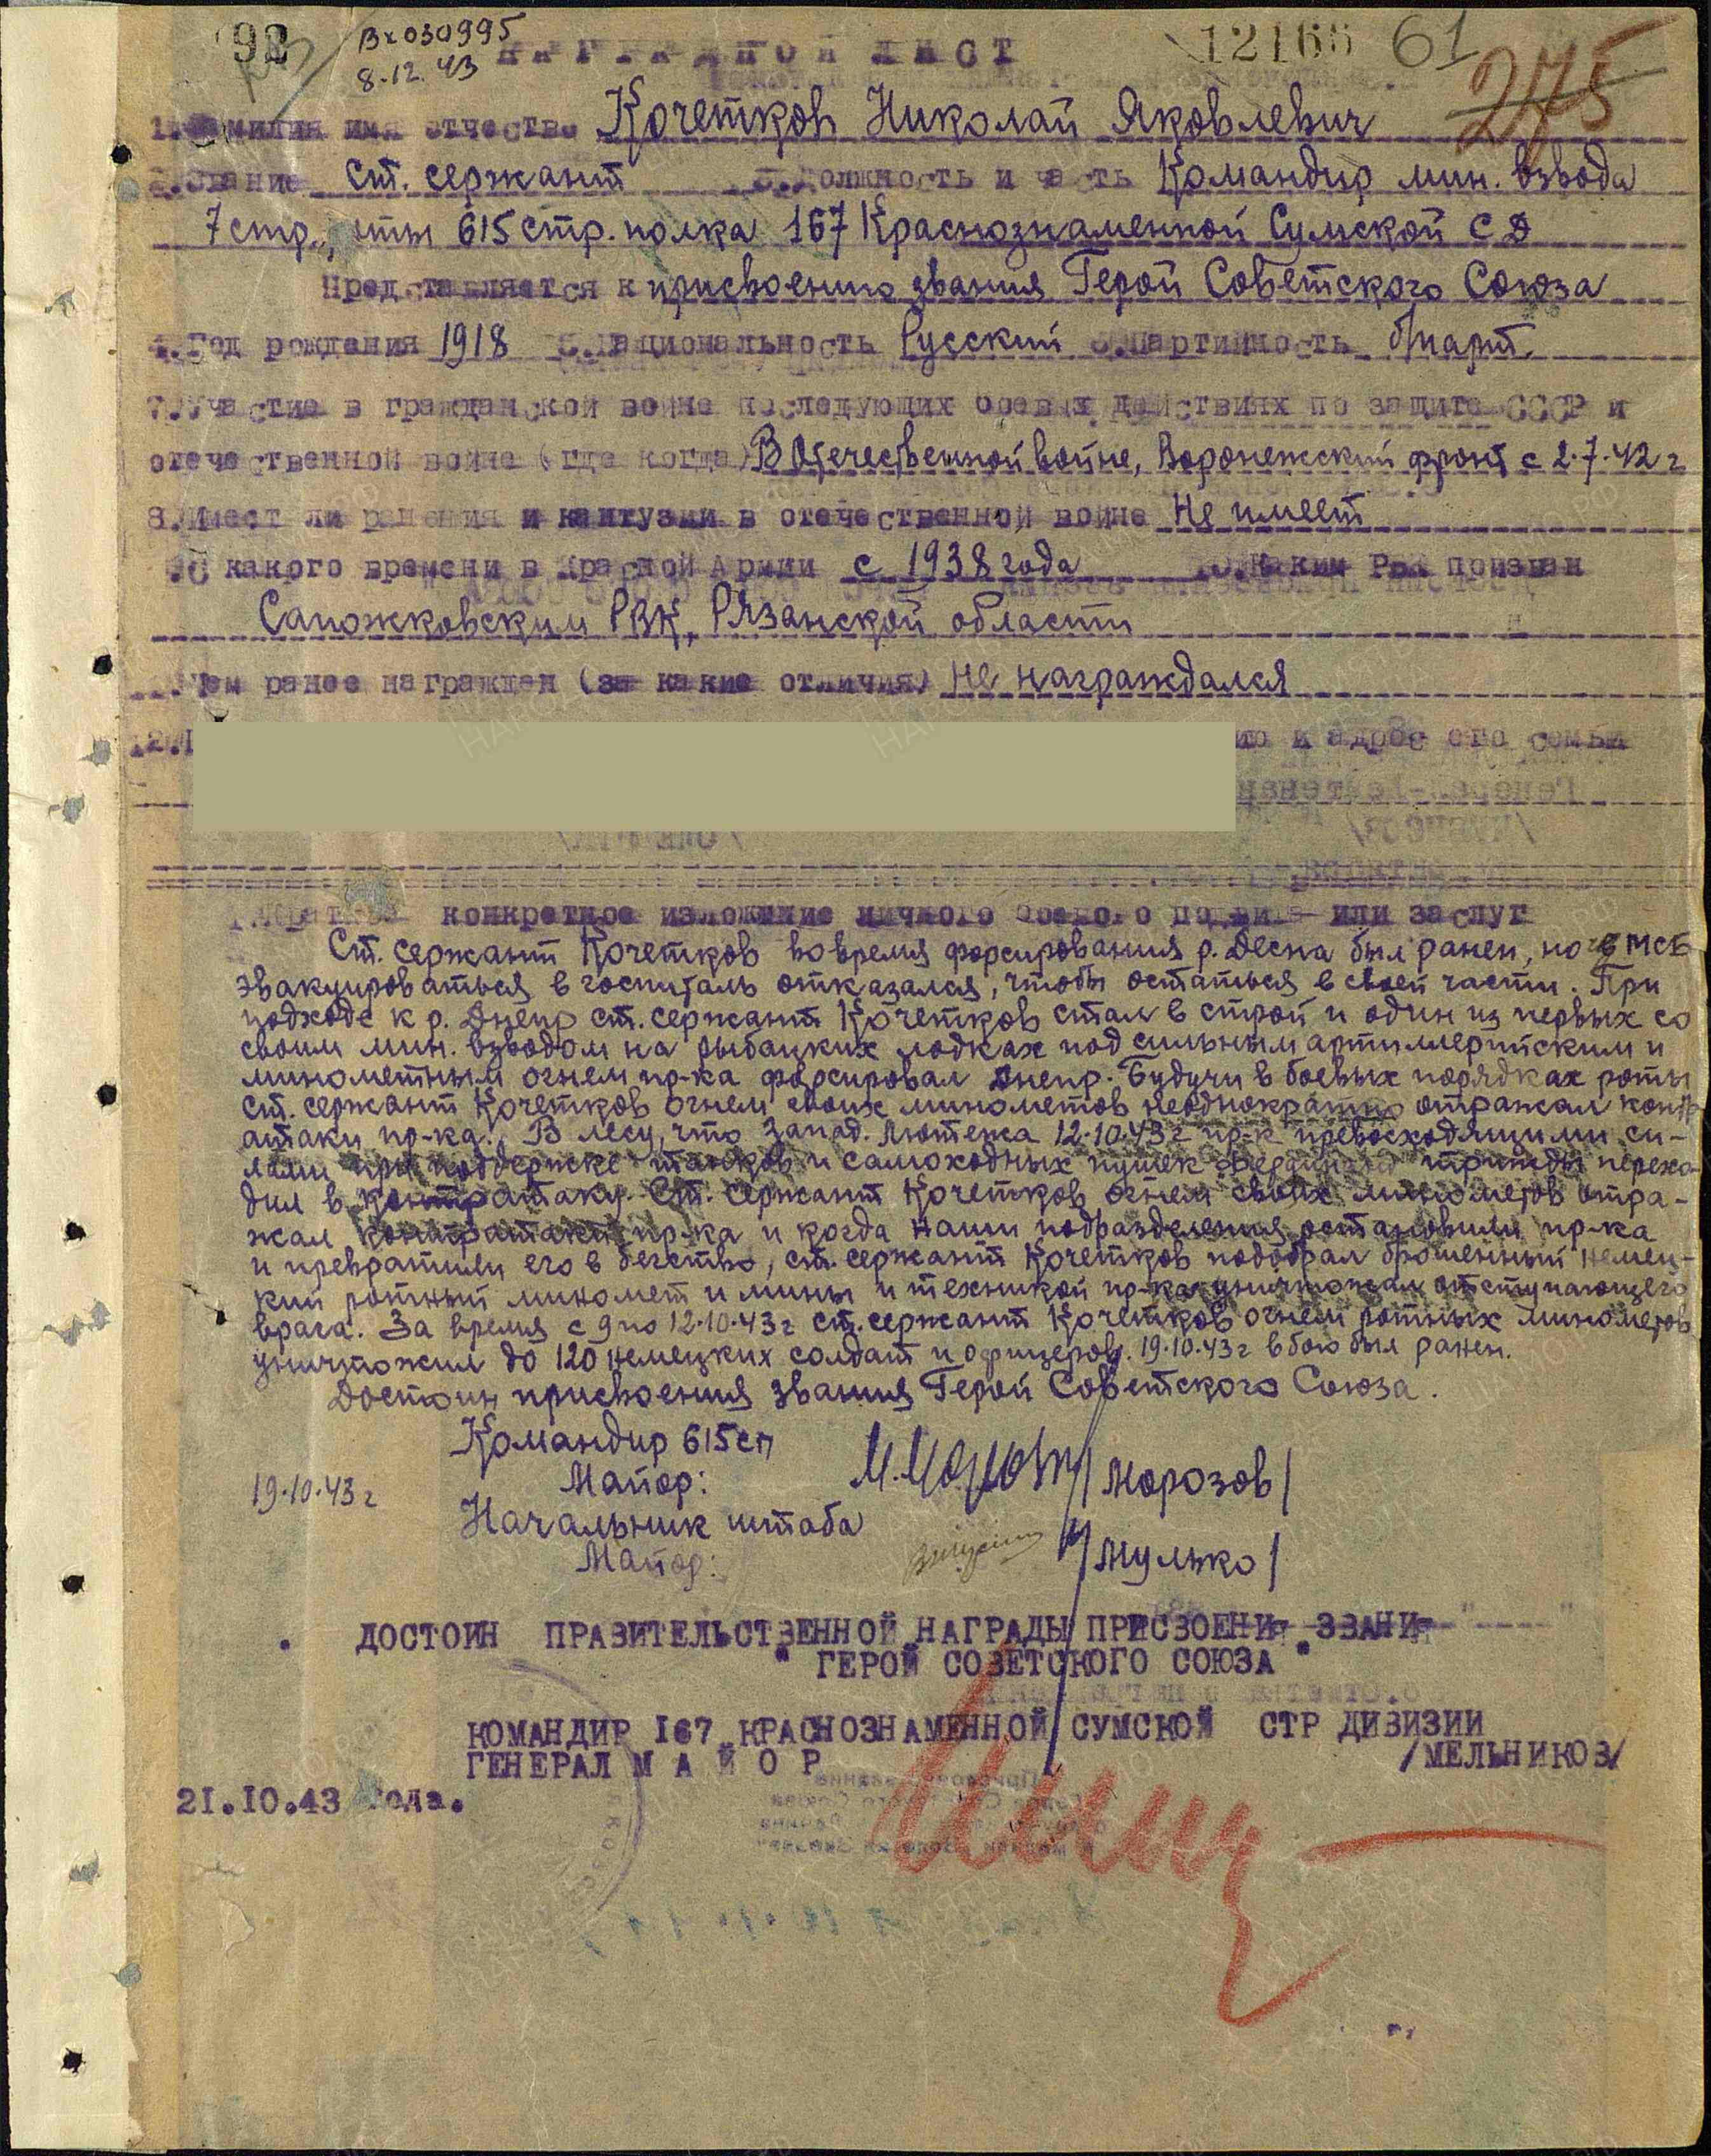 92
Вх 030995
8.12.43
НАГРАДНОЙ ЛИСТ
12166 61
275
1. Фамилия имя отчество Кочетков Николай Яковлевич
2. Звание Ст. сержант 3. Должность и часть Командир мин. взвода
7 стр. роты 615 стр. полка 167 Краснознаменной Сумской СД
Представляется к присвоению звания Герой Советского Союза
4. Год рождения 1918 5. Национальность Русский 6. Партийность б/парт.
7. Участие в гражданской войне последующих боевых действиях по защите СССР и
отечественной войне (где когда) В Отечественной войне, Воронежский фронт с 2.7.42 г
8. Имеет ли ранения и контузии в отечественной войне Не имеет
9. С какого времени в Красной Армии с 1938 года 10. Каким Рвк призван
Сапожковским РВК, Рязанской области
11. Чем ранее награжден (за какие отличия) не награждался
12. и адрес его семьи
1. Краткое конкретное изложение личного боевого подвига или заслуг
Ст. сержант Кочетков во время форсирования р. Десна был ранен, но с МСБ
эвакуироваться в госпиталь отказался, чтобы остаться в своей части. При
подходе к р. Днепр ст. сержант Кочетков стал в строй и один из первых со
своим мин. взводом на рыбацких лодках под сильным артиллерийским и
минометным огнем пр-ка форсировал Днепр. Будучи в боевых порядках роты
ст. сержант Кочетков огнем своих минометов неоднократно отражал контр
атаки пр-ка. В лесу, что запад. Лютежа 12.10.43 г пр-к превосходящими си-
лами при поддержке танков и самоходных пушек Фердинанд трижды перехо-
дил в контратаку. Ст. сержант Кочетков огнем своих минометов отра-
жал контратаки пр-ка и когда наши подразделения остановили пр-ка
и превратили его в бегство, ст. сержант Кочетков подобрал брошенный немец-
кий ротный миномет и мины и техникой пр-ка уничтожал отступающего
врага. За время с 9 по 12.10.43 г ст. сержант Кочетков огнем ротных минометов
уничтожил до 120 немецких солдат и офицеров. 19.10.43 г в бою был ранен.
Достоин присвоения звания Герой Советского Союза.
Командир 615 сп
Майор: /Морозов/
19.10.43 г
Начальник штаба
Майор: /Мулько/
ДОСТОИН ПРАВИТЕЛЬСТВЕННОЙ НАГРАДЫ ПРИСВОЕНИЯ ЗВАНИЯ
" ГЕРОЙ СОВЕТСКОГО СОЮЗА "
КОМАНДИР 167 КРАСНОЗНАМЕННОЙ СУМСКОЙ СТР ДИВИЗИИ
ГЕНЕРАЛ МАЙОР /МЕЛЬНИКОВ/
21.10.43 года.